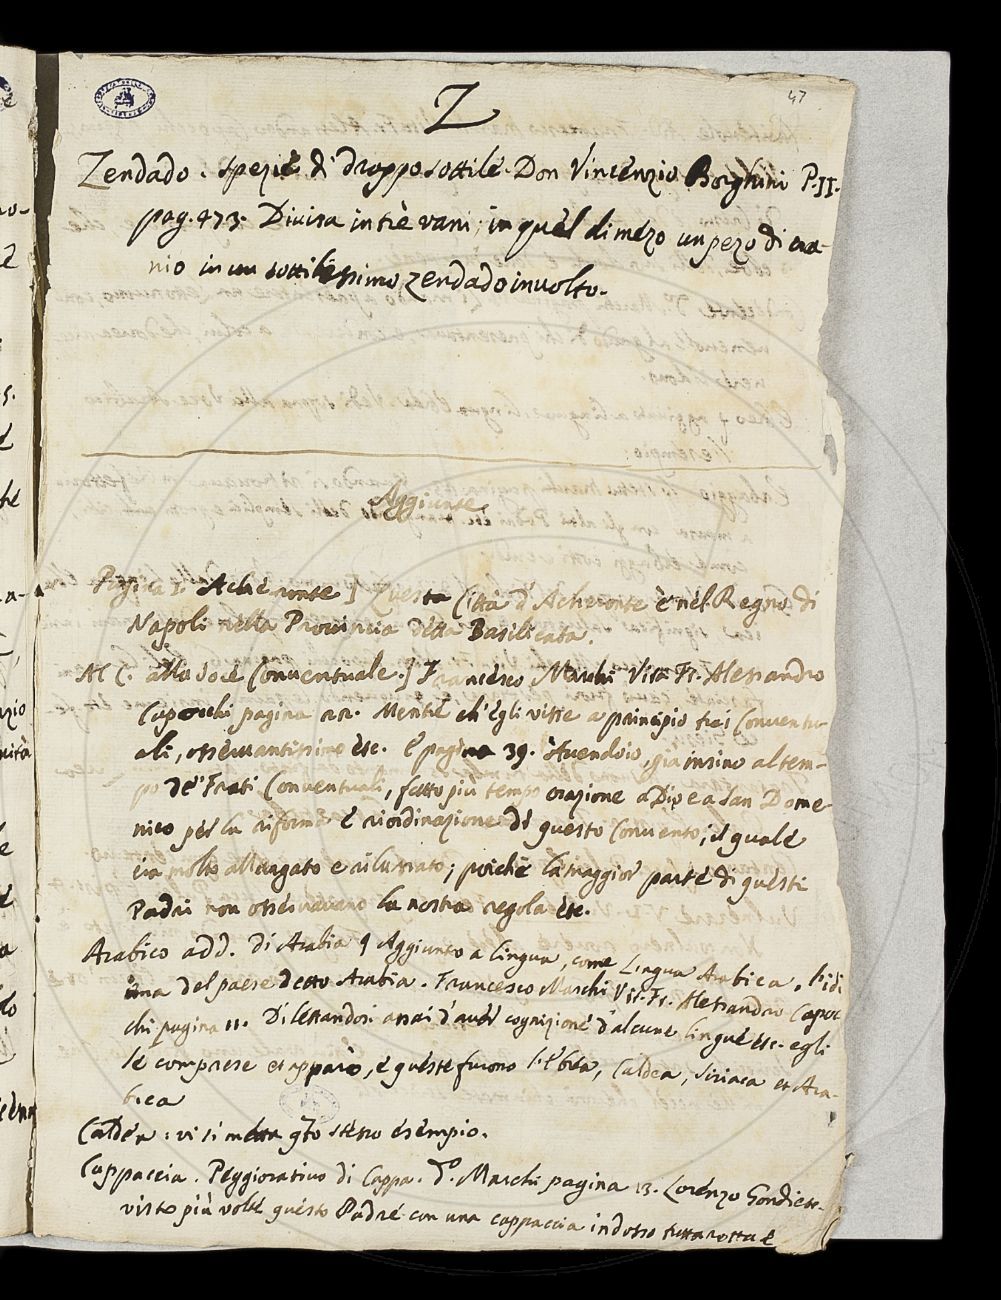 47
Z
Zendado. spezie di drappo sottile. Don Vincenzio Borghini P. II.
pag. 473. Divisa in tre vani, in quel di mezo un pezo di cra-
nio in un sottilissimo zendado involto.
Aggiunte
Pagina 1. Acheronte] Questa Città d'Acheronte è nel Regno di
Napoli nella Provincia detta Basilicata.
Al C. alla voce Conventuale.] Francesco Marchi Vita Fr. Alessandro
Capocchi pagina Mentre ch'egli visse a principio trai Conventu-
ali, osservantissimo etc. E pagina 39. Avendo io, gia insino al tem-
po de' Frati Conventuali, fatto più tempo orazione a Dio e a San Dome
nico per la riforma e riordinazione di questo Convento; il quale
era molto allargato e rilassato; poichè la maggior parte di questi
Padri non osservavano la nostra regola etc.
Arabico add. di Arabia ¶ Aggiunto a lingua, come Lingua Arabica, l'idi
oma del paese detto Arabia. Francesco Marchi Vit. Fr. Alessandro Capoc
chi pagina 11. Dilettandosi assai d'aver cognizione d'alcune lingue etc. egli
le comprese et apparò, e queste furono l'Ebrea, Caldea, Siriaca et Ara-
bica
Caldea: vi si metta q̃to stesso esempio.
Cappaccia. Peggiorativo di Cappa. Marchi pagina 13. Lorenzo Gondi etc.
visto più volte questo Padre con una cappaccia indosso tutta rotta e